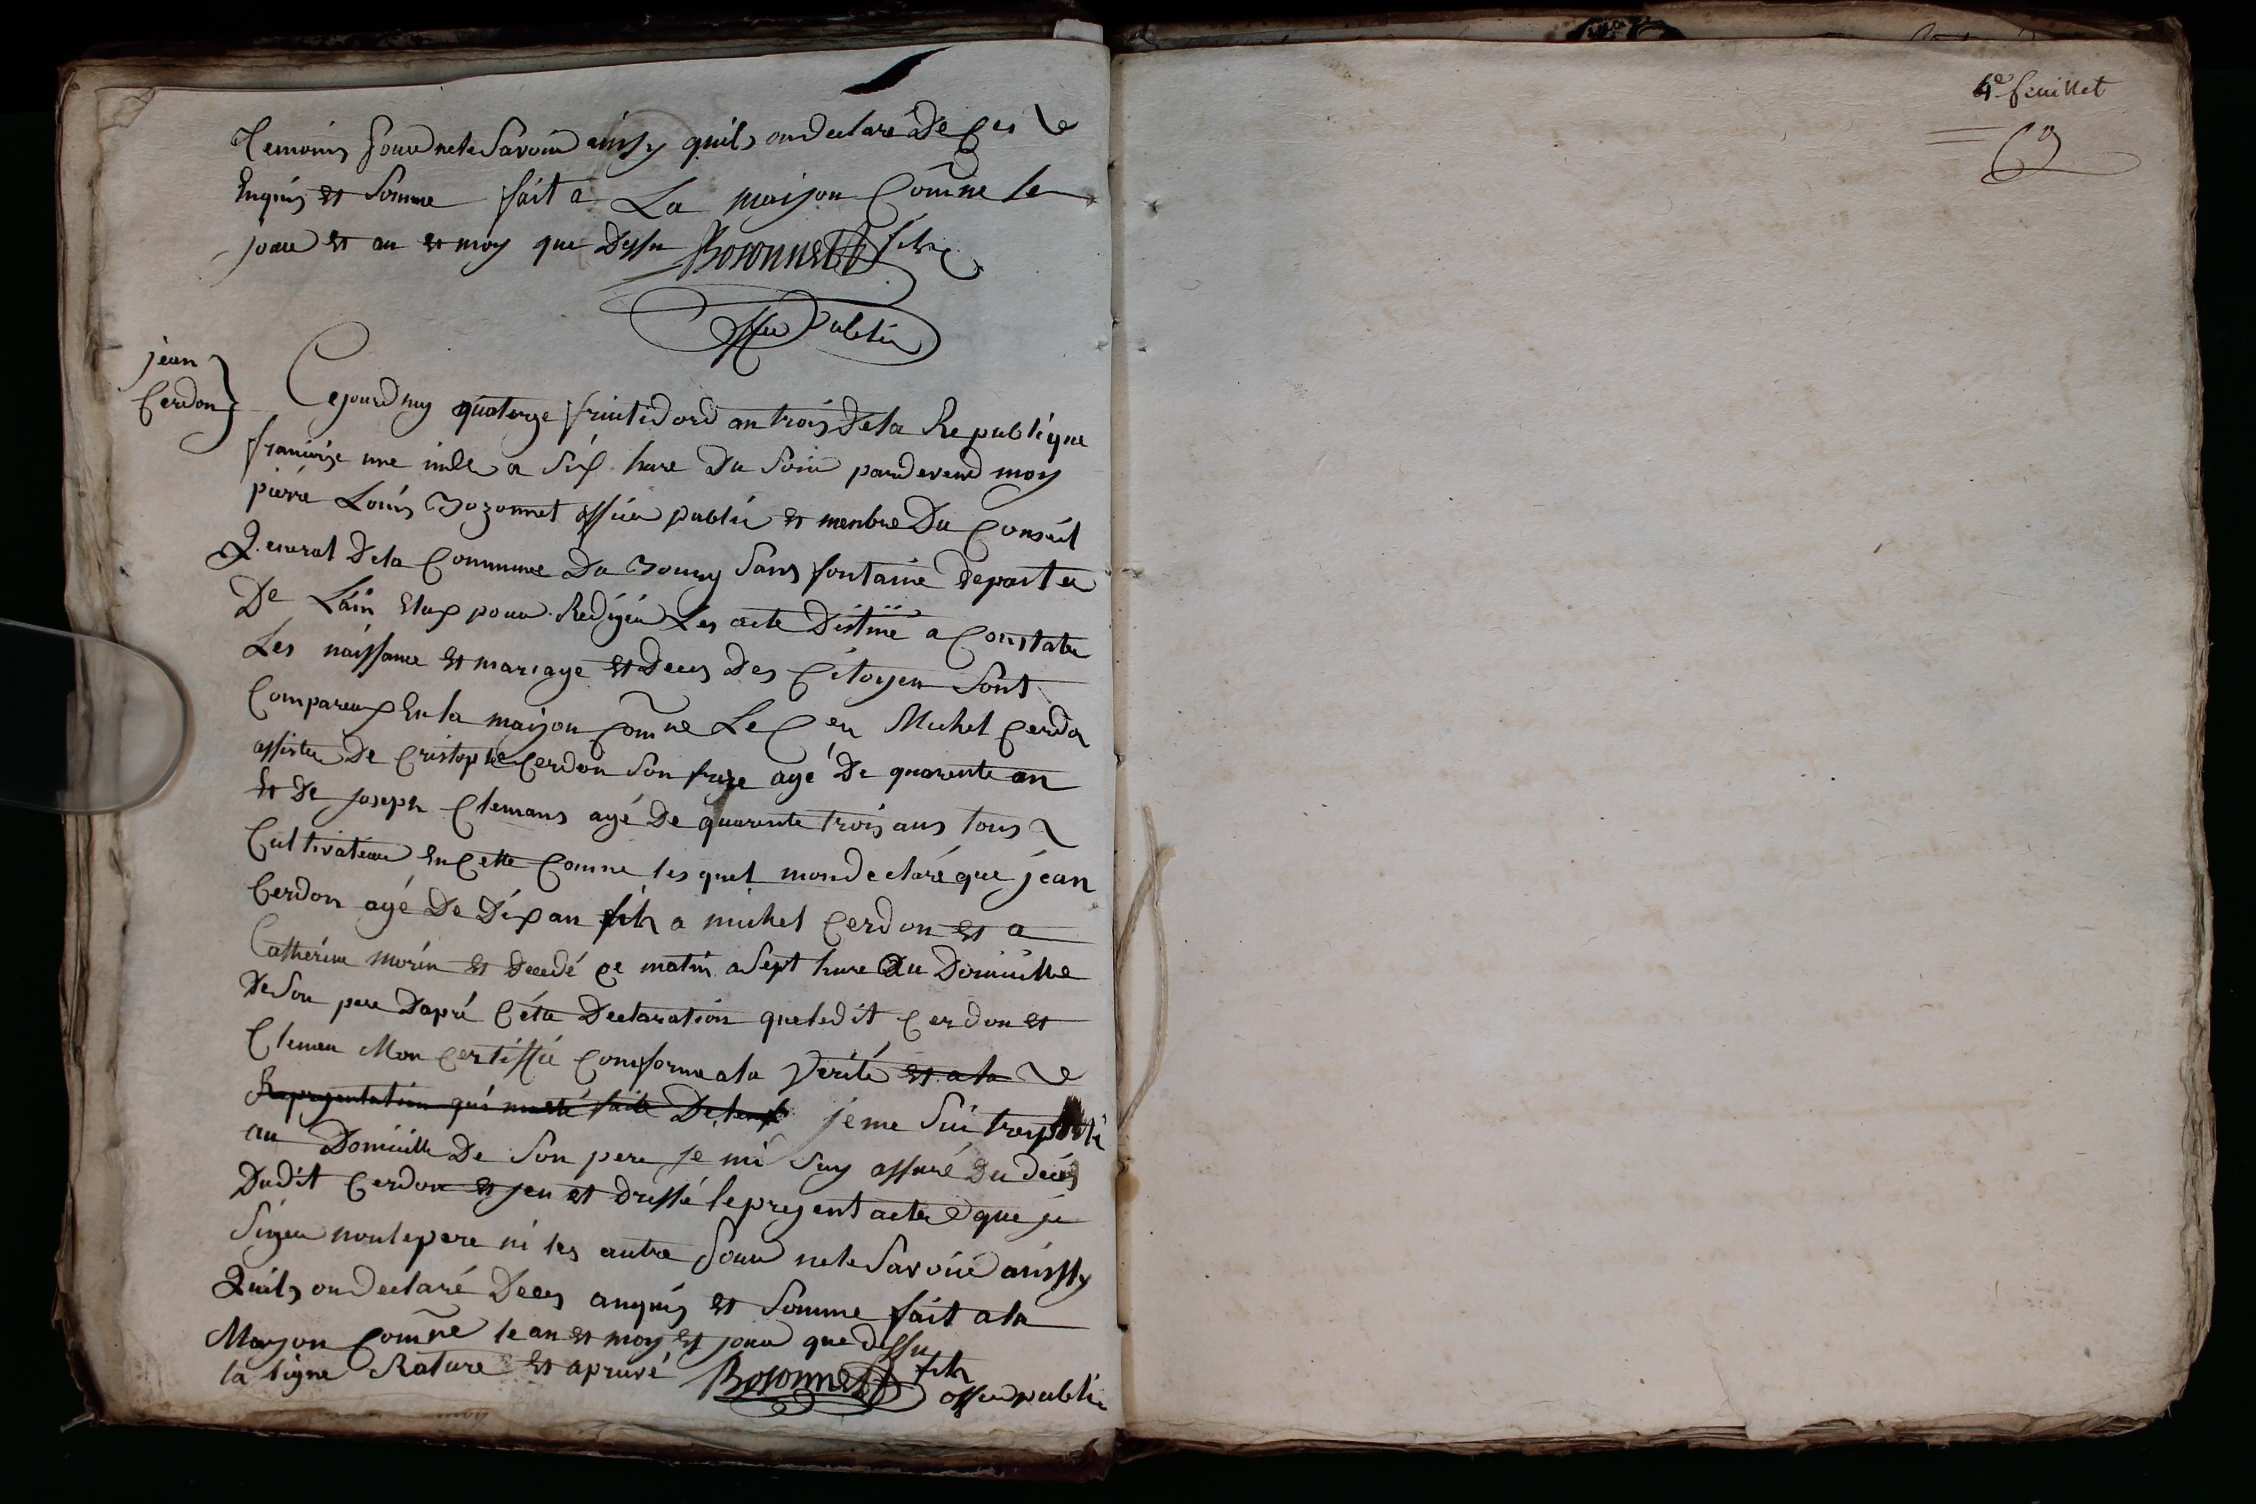 Temoins pour ne le Savoir ainsy quils on declaré De Ces
Enquis et Somme fait a La maison Comne le
jour et an et moy que Dessu Bosonnet fils
offier Public
jean
Cerdon
Cejourdhuy quatorze fruictidord an trois Dela Republique
francoise une indle a Six hure Du Soir pardevend moy
pierre Louis Bozonnet offier public et menbre Du Conseil
General Dela Commune Du Bourg Sans fontaine departe
De Láin Elux pour Redigér Les acte Distiné a Constater
Les naissance et mariage et Deces Des Citoyen Sont
Compareux En la maison Comne Le Cen Michel Cerdon
assister De Cristophe Cerdon Son frere agé De quarente an
Et De joseph Clemans agé De quarente trois ans tous
Cultivateur En Cette Comne les quel mon declaré que jéan
Cerdon agé De Dix an fils a michel Cerdon et a
Catherine morin et Decedé ce matin a Sept hure Du Domicille
De Son pere Dapré Céte Declaration que ledit Cerdon et
Clemen Mon Certiffié Conforme a la Verité et a la
Represantation qui mesté faite De lenf je me Sui transporté
au Domicille De Son pere je mi Suy assuré Du décés
Dudit Cerdon et jen et dressé le present acte que je
Signer non le pere ni les autre pour ne le Savoir ainssy
Quils on declaré De ces anquis et Somme fait a la
Mayson Comne le an et moy et jour que dessu
la ligne Rature et apruvé Bosonnet fils
offier public
4e feuillet